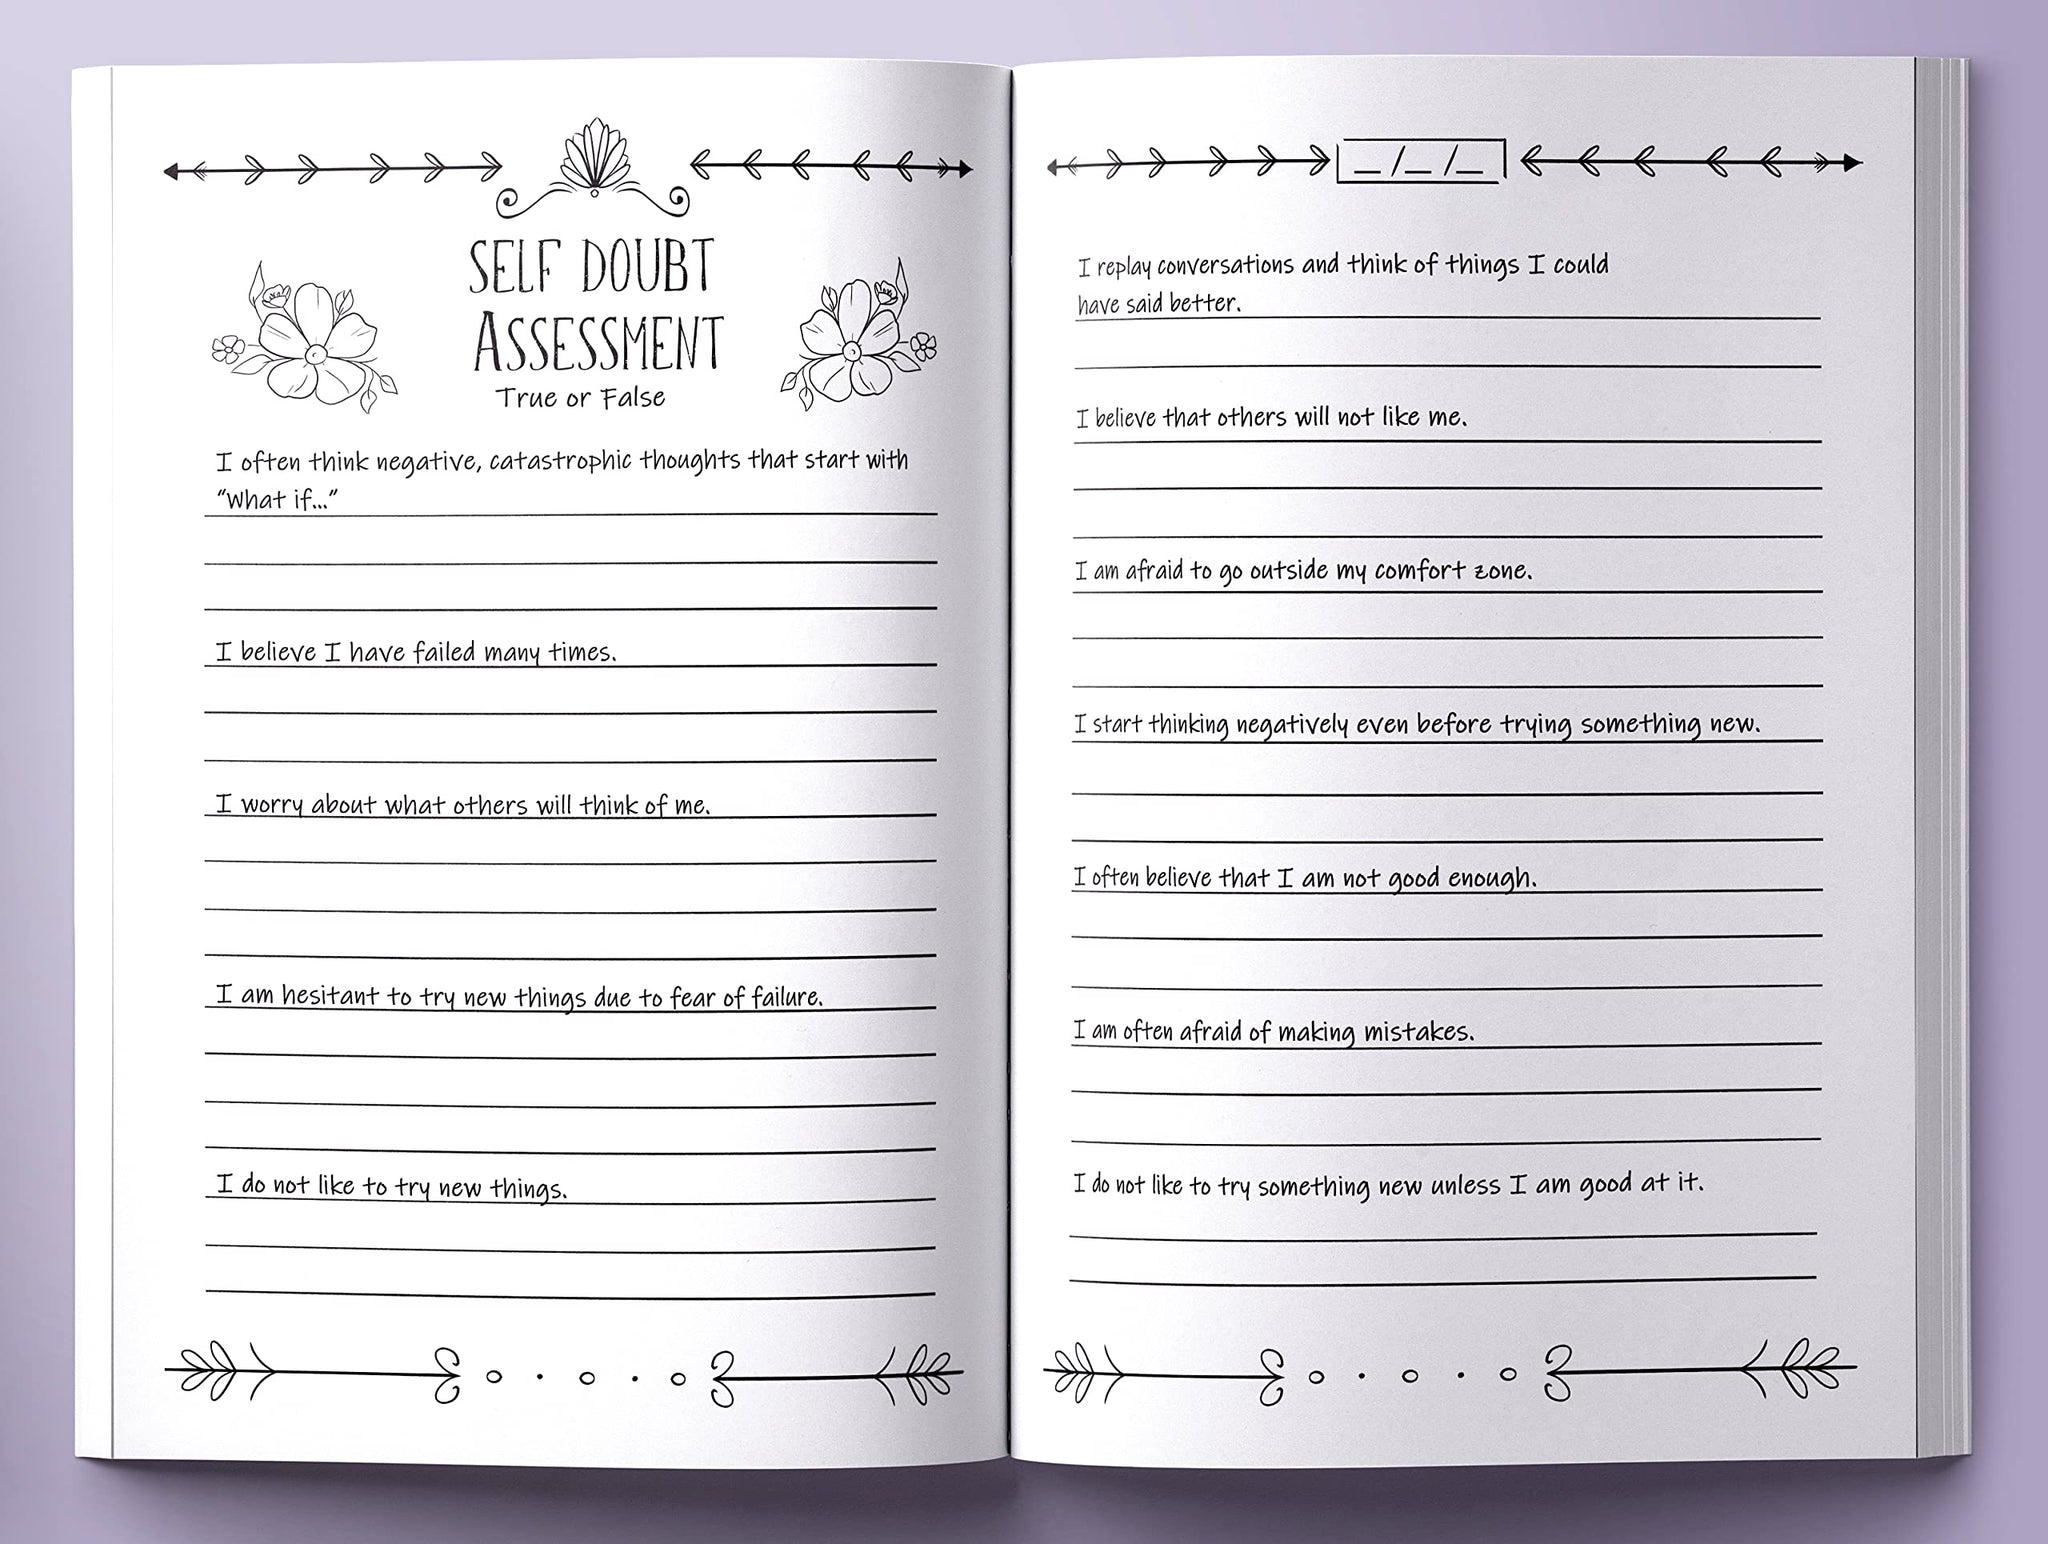 SELF DOUBT
ASSESSMENT
True or False
I often think negative, catastrophic thoughts that start with
"What if..."
I believe I have failed many times.
I worry about what others will think of me.
I am hesitant to try new things due to fear of failure.
I do not like to try new things.
_/_/_
I replay conversations and think of things I could
have said better.
I believe that others will not like me.
I am afraid to go outside my comfort zone.
I start thinking negatively even before trying something new.
I often believe that I am not good enough.
I am often afraid of making mistakes.
I do not like to try something new unless I am good at it.